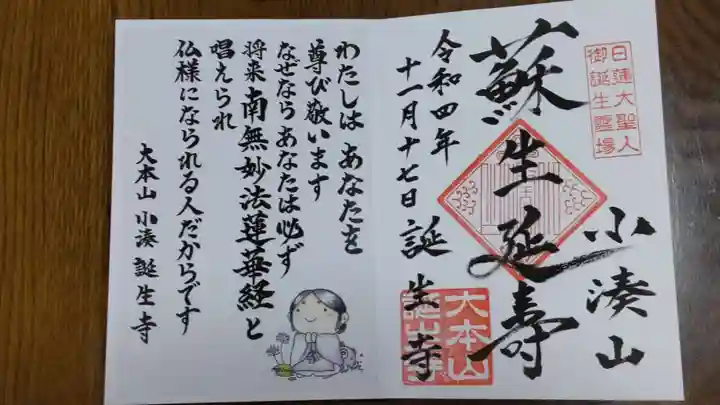 日蓮大聖人
御誕生霊場
小湊山
蘇生延寿
大本山
誕生寺
令和四年
十一月十七日 誕生寺
わたしは あなたを
尊び敬います
なぜなら あなたは必ず
将来 南無妙法蓮華経と
唱えられ
仏様になられる人だからです
大本山 小湊 誕生寺